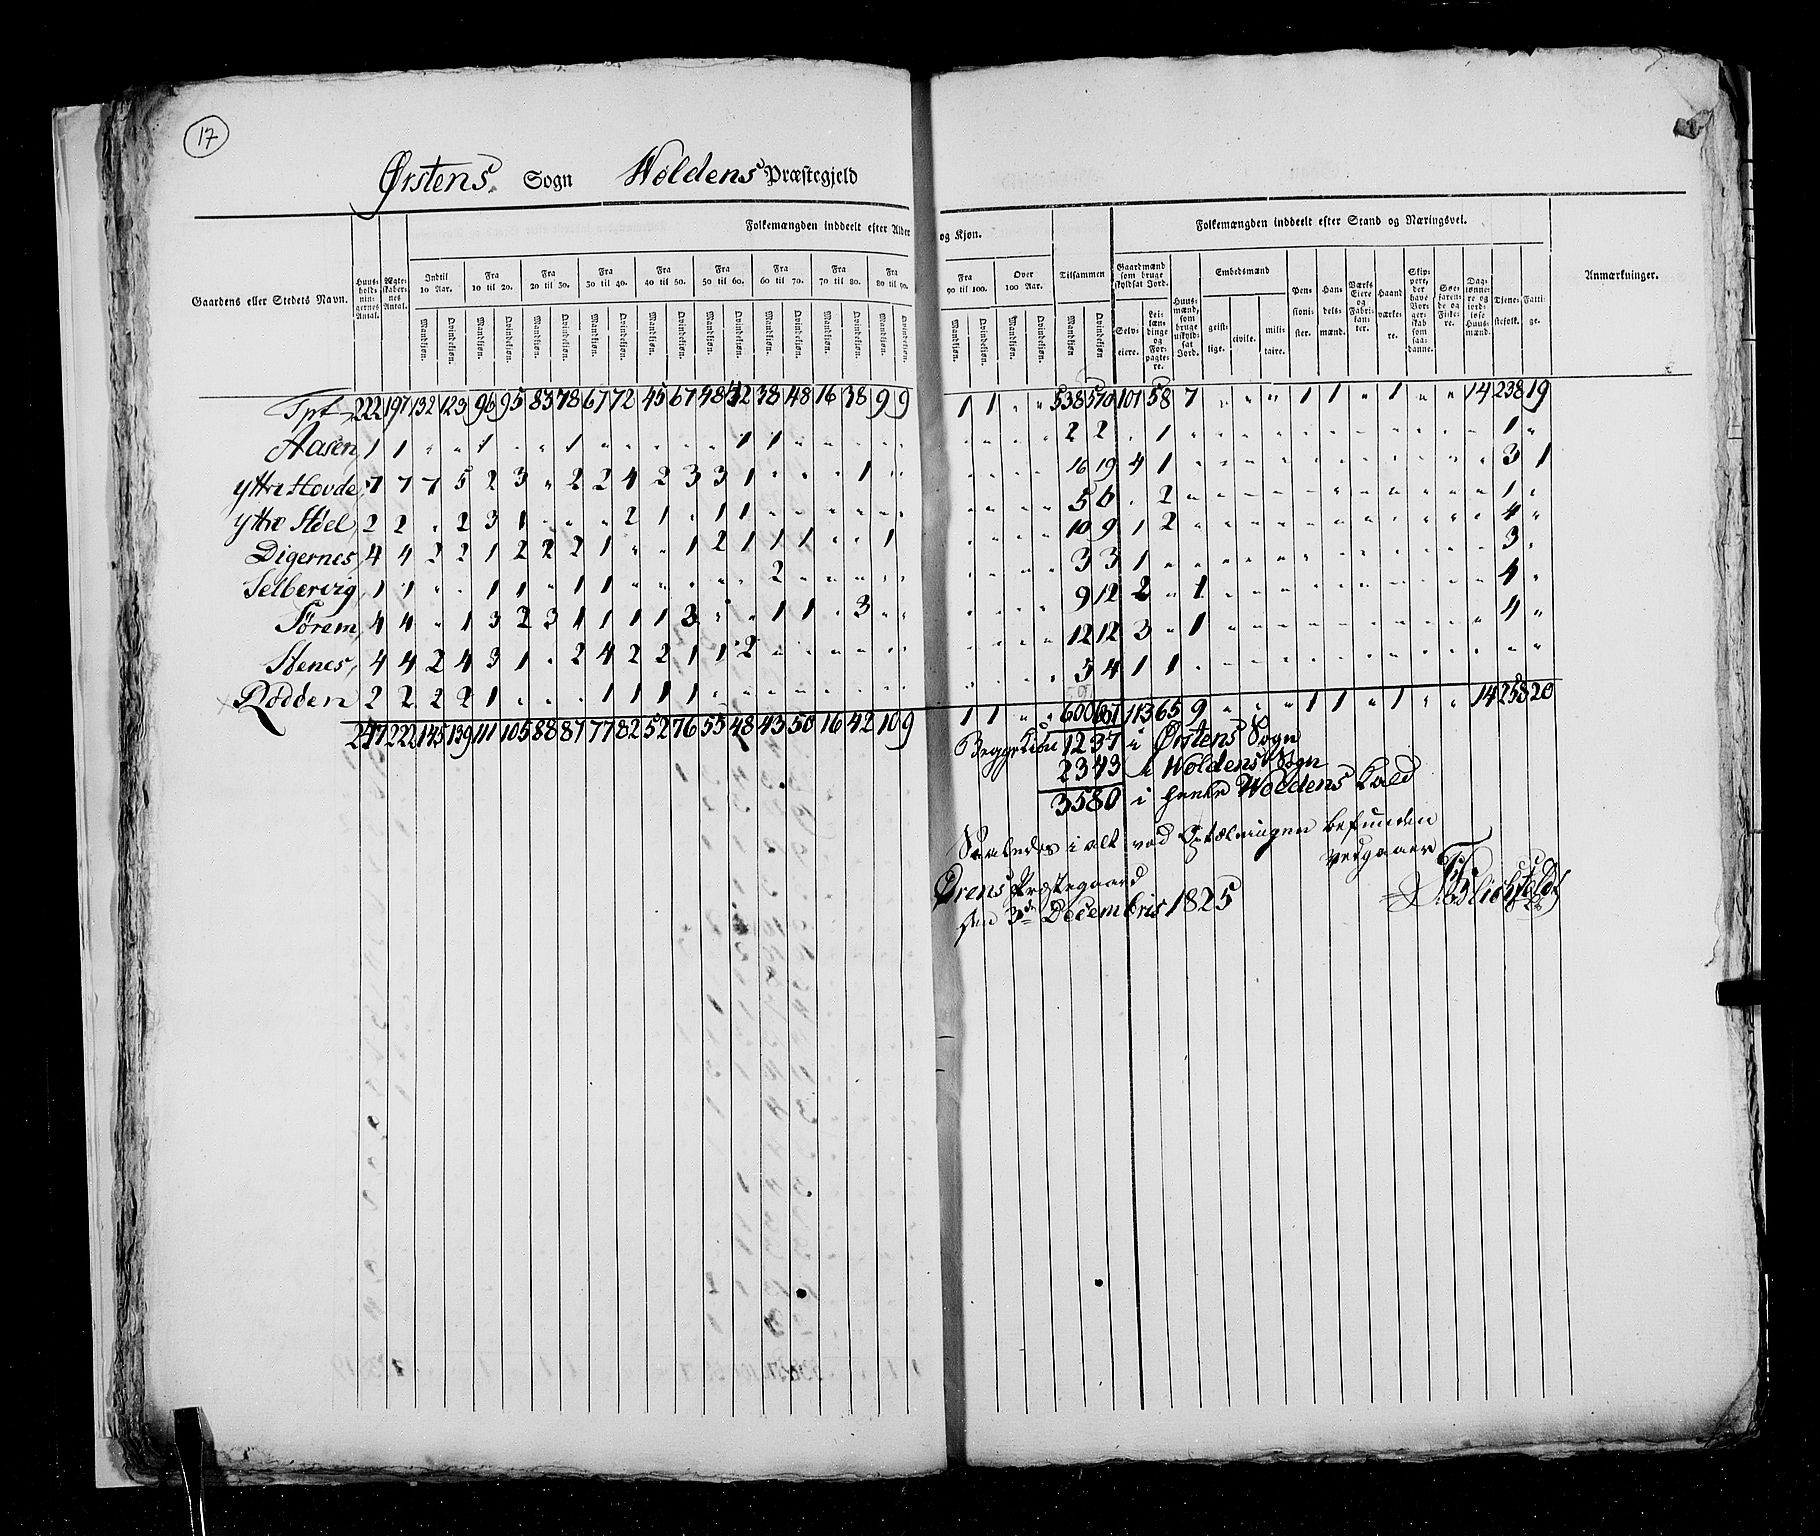 17
Ørstens Sogn Woldens Præstegjeld
Folkemængden inddeelt efter Alder og Kjøn. Folkemængden inddeelt efter Stand og Næringsvei.
Gaardens eller Stedets Navn. Huusholdningernes Antal. Ægteskabernes Antal. Indtil 10 Aar. Fra 10 til 20. Fra 20 til 30. Fra 30 til 40. Fra 40 til 50. Fra 50 til 60. Fra 60 til 70. Fra 70 til 80. Fra 80 til 90. Fra 90 til 100. Over 100 Aar. Tilsammen Gaardmænd som bruge skyldsat Jord. Huusmænd, som bruge uskyldsat Jord. Embedsmænd Pensionister. Handelsmænd. Værks Eiere og Fabrikanter. Haandværkere. Skippere, der have Borgerskab som saadanne. Søefarende og Fiskere. Daglønnere og jordløse Huusmænd. Tjenestefolk. Fattige. Anmærkninger.
Mandkjøn. Qvindekjøn. Mandkjøn. Qvindekjøn. Mandkjøn. Qvindekjøn. Mandkjøn. Qvindekjøn. Mandkjøn. Qvindekjøn. Mandkjøn. Qvindekjøn. Mandkjøn. Qvindekjøn. Mandkjøn. Qvindekjøn. Mandkjøn. Qvindekjøn. Mandkjøn. Qvindekjøn. Mandkjøn. Qvindekjøn. Mandkjøn Qvindekjøn Selveiere. Leilændinge og Forpagtere. geistlige. civile. militaire.
Tpt 222 197 132 123 96 95 83 78 67 72 45 67 48 42 38 48 16 38 9 9 1 1 " " 538 570 101 58 7 " " " 1 1 " 1 " " 14 238 19
Aasen, 1 1 " " 1 " " 1 " " " " " 1 1 " " " " " " " " " 2 2 " 1 " " " " " " " " " " " 1 "
Yttre Hovde, 7 7 7 5 2 3 " 2 2 4 2 3 3 1 " " " 1 " " " " " " 16 19 4 1 " " " " " " " " " " " 3 1
Yttre Støel, 2 2 " 2 3 1 " " " 2 1 " 1 1 " " " " " " " " " " 5 6 " 2 " " " " " " " " " " " 1 "
Digernes, 4 4 2 2 1 2 2 2 1 " " 1 2 1 1 1 " " 1 " " " " " 10 9 1 2 " " " " " " " " " " " 4 "
Selbervig, 1 1 " " 1 1 " 1 1 " " " " " 2 " " " " " " " " " 3 3 1 " " " " " " " " " " " " 3 "
Sørem, 4 4 " 1 3 2 3 1 1 1 1 3 " " 1 1 " 3 " " " " " " 9 12 2 " 1 " " " " " " " " " " 4 "
Stenes, 4 4 2 4 3 1 " 2 4 2 2 1 1 2 " " " " " " " " " " 12 12 3 " 1 " " " " " " " " " " 4 "
Rødden 2 2 2 2 1 " " " 1 1 1 1 " " " " " " " " " " " " 5 4 1 1 " " " " " " " " " " " " "
247 222 145 139 111 105 88 87 77 82 52 76 55 48 43 50 16 42 10 9 1 1 " " 600 637 113 65 9 " " " 1 1 " 1 " " 14 258 20
Begge Kiøn 1237 i Ørstens Sogn
2343 i Woldens Sogn
3580 i heele Woldens Kald
Saaledes i alt ved Optælningen befunden
vedgaaer
Ørens Præstegaard
den 3de Decembris 1825